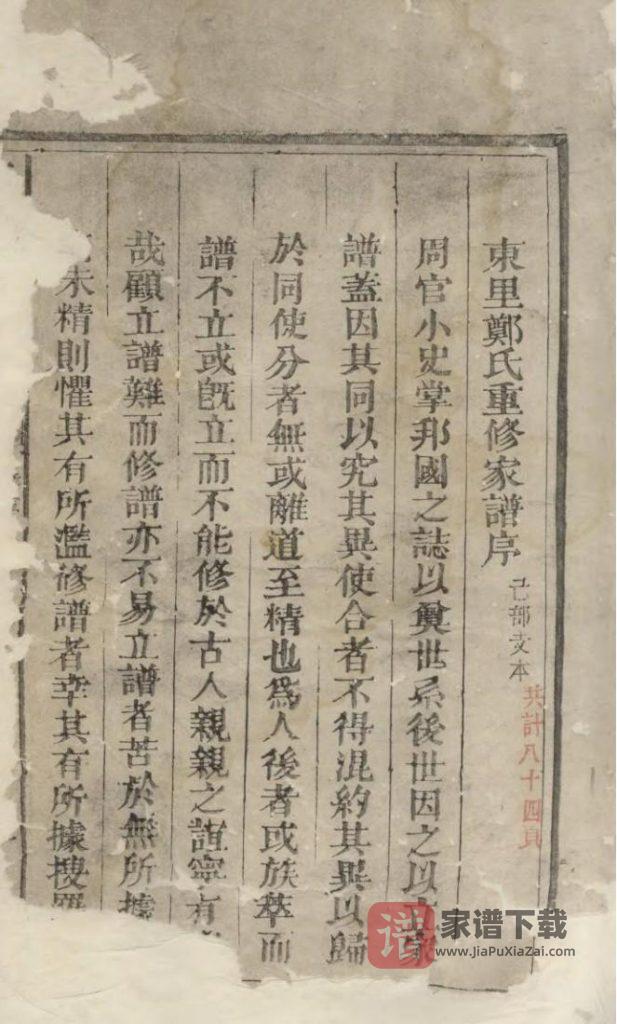 東里鄭氏重修家譜序 己部支本 共計八十四頁
周官小史掌邦國之誌以奠世系後世因之以立家
譜蓋因其同以究其異使合者不得混約其異以歸
於同使分者無或離道至精也為人後者或族萃而
譜不立或旣立而不能修於古人親親之誼寧有
哉顧立譜難而修譜亦不易立譜者苦於無所據
未精則懼其有所濫修譜者幸其有所據搜羅
谱 家谱下载
www.JiaPuXiaZai.com